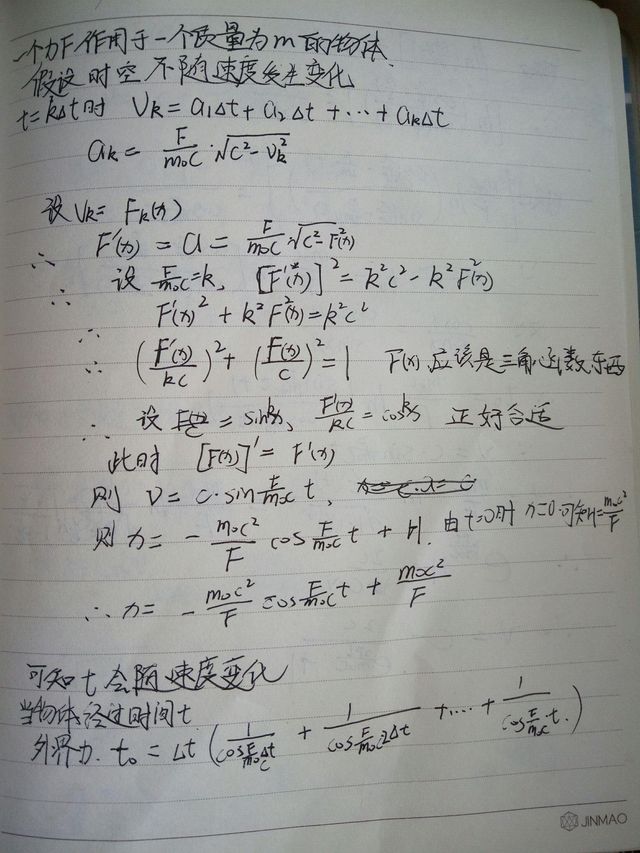 一个力F作用于一个质量为m的物体.
假设时空不随速度发生变化
t=kΔt时 Vk = a₁Δt + a₂Δt + ⋯ + akΔt
ak = F/m₀c · √(c²-vk²)
设 Vk = Fk(x)
∴ F'(x) = a = F/m₀c · √(c²-F²(x))
∴ 设 F/m₀c = k, [F'(x)]² = k²c² - k²F²(x)
∴ F'(x)² + k²F²(x) = k²c²
∴ (F'(x)/kc)² + (F(x)/c)² = 1 F(x)应该是三角函数东西
∴ 设 F(x)/c = sinkx, F'(x)/kc = coskx 正好合适
此时 [F(x)]' = F'(x)
则 v = c·sin F/m₀c t,
则 x = - m₀c²/F cos F/m₀c t + H. 由t=0时 x=0.可知H=m₀c²/F
∴ x = - m₀c²/F cos F/m₀c t + m₀c²/F
可知t会随速度变化
当物体经过时间t
外界为. t₀ = Δt ( 1/cos F/m₀c Δt + 1/cos F/m₀c 2Δt + ⋯ + 1/cos F/m₀c t. )
JINMAO